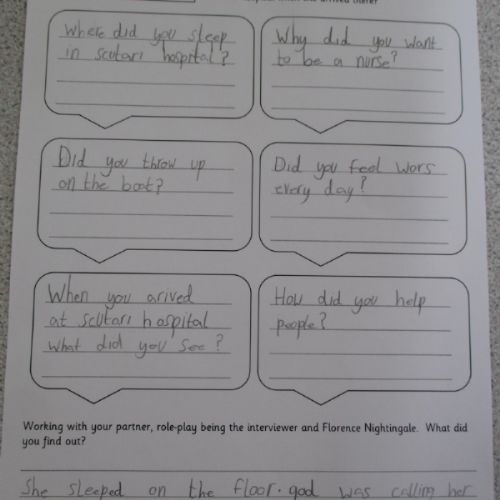 Where did you sleep
in scutari hospital?
Why did you want
to be a nurse?
Did you throw up
on the boat?
Did you feel wors
every day?
When you arived
at scutari hospital
what did you see?
How did you help
people?
Working with your partner, role-play being the interviewer and Florence Nightingale. What did
you find out?
She sleeped on the floor. god was calling her